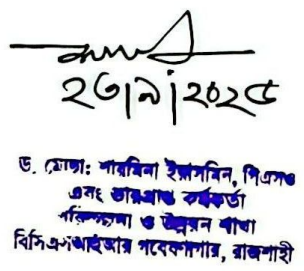 ২৩|৯|২০২৫
ড. মোছা: শারমিনা ইয়াসমিন, পিএসও
এবং ভারপ্রাপ্ত কর্মকর্তা
পরিকল্পনা ও উন্নয়ন শাখা
বিসিএসআইআর গবেষণাগার, রাজশাহী